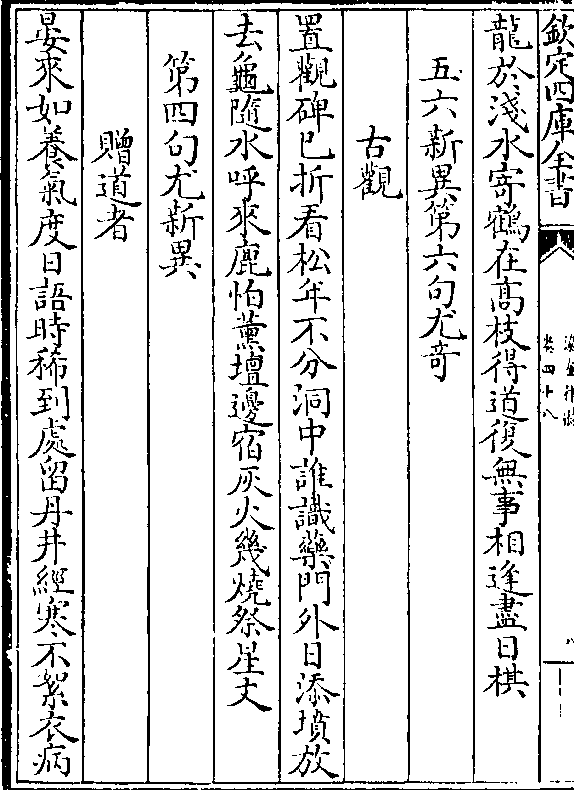 欽定四庫全書
卷四十八
龍於淺水寄鶴在髙枝得道復無事相逢盡日棋
五六新異第六句尤竒
古觀
置觀碑已折看松年不分洞中誰識藥門外日添墳放
去龜隨水呼來鹿怕薰壇邊宿灰火幾燒祭星文
第四句尤新異
贈道者
晏來如養氣度日語時稀到處留丹井經寒不絮衣病